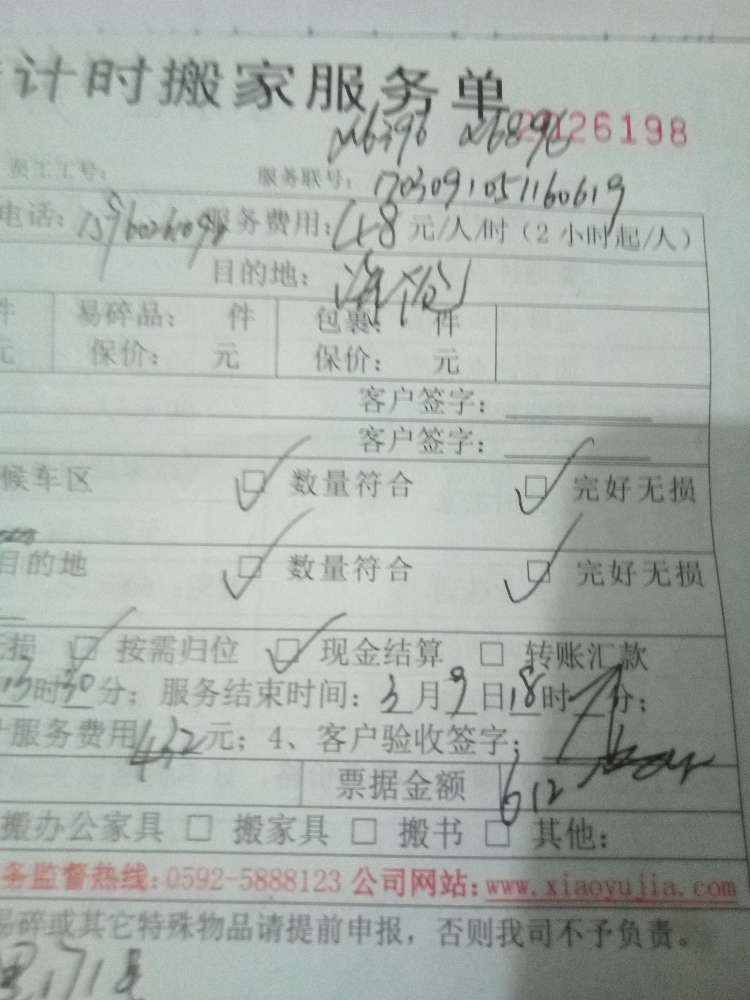 计时搬家服务单
26396 26896 2026198
员工工号: 服务联号: 170309105116061 9
电话: 服务费用: 48 元/人/时（2小时起/人）
目的地:
件 易碎品: 件 包裹: 件
元 保价: 元 保价: 元
客户签字:
客户签字:
候车区 □ 数量符合 □ 完好无损
目的地 □ 数量符合 □ 完好无损
损 □ 按需归位 □ 现金结算 □ 转账汇款
13时30分；服务结束时间: 3月9日18时 分；
服务费用432元；4、客户验收签字:
票据金额 612
搬办公家具 □ 搬家具 □ 搬书 □ 其他:
务监督热线:0592-5888123 公司网站:www.xiaoyujia.com
易碎或其它特殊物品请提前申报，否则我司不予负责。